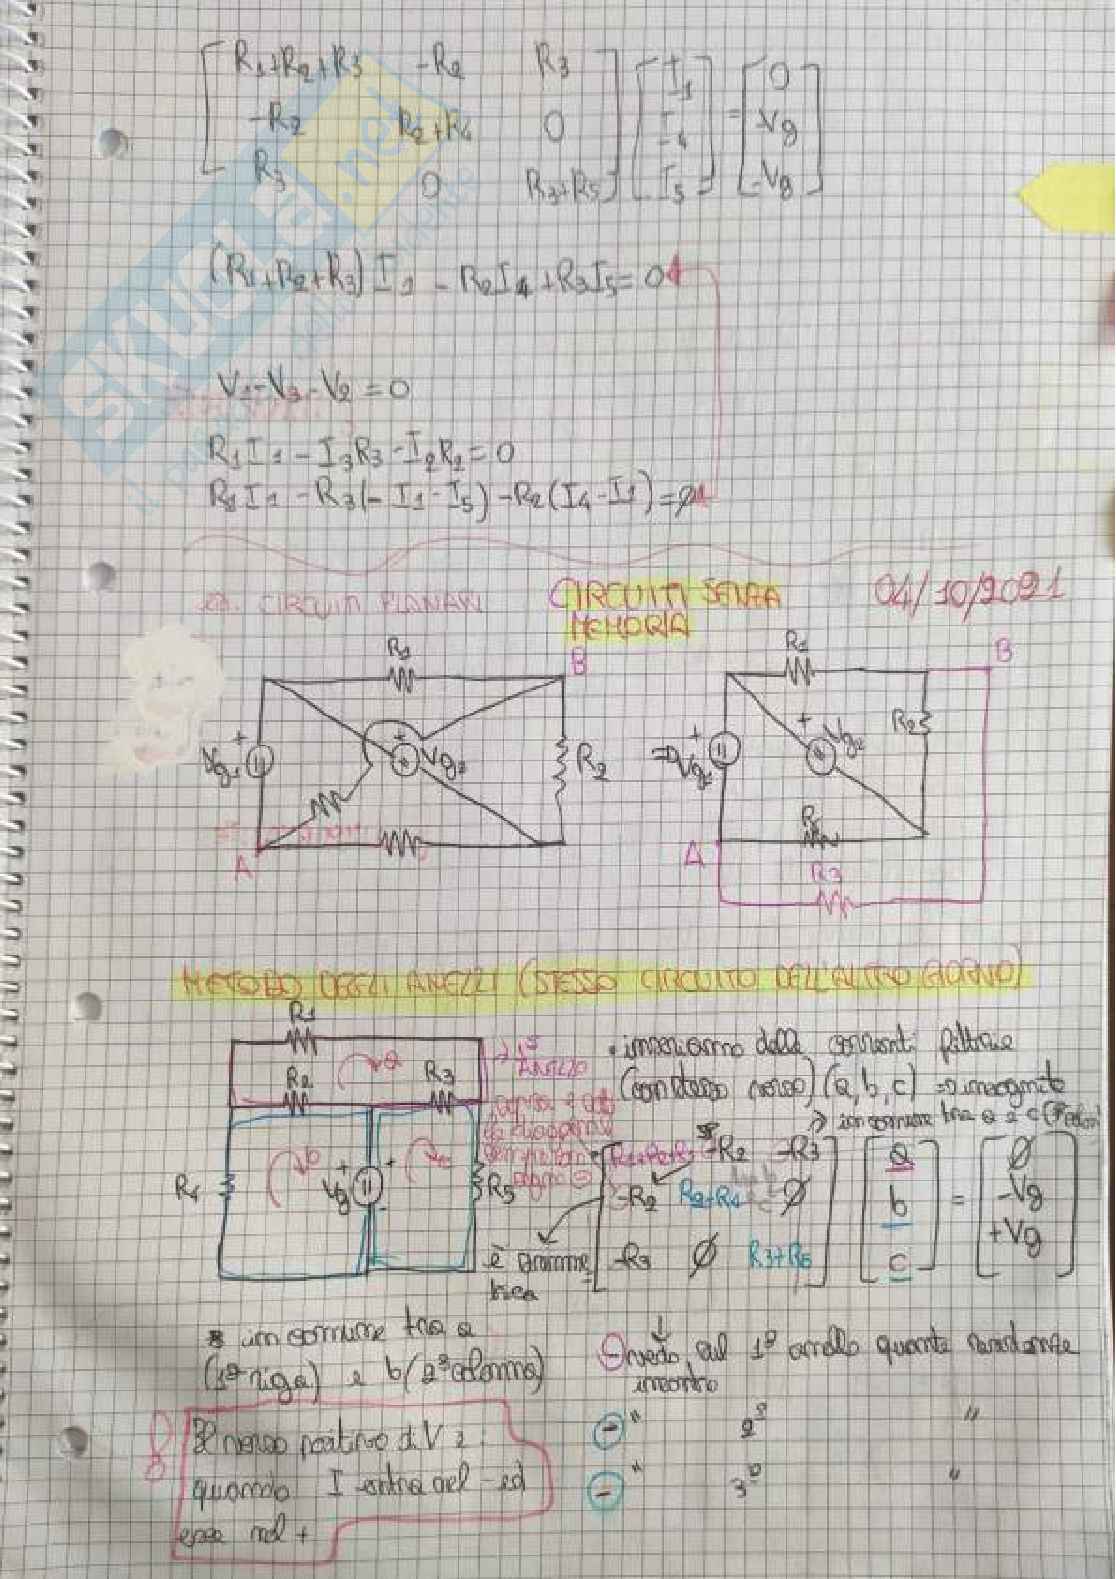 R1+R2+R3 -R2 R3 I1 0
-R2 R2+R4 0 I4 = -Vg
R3 0 R3+R5 I5 -Vg
SKUOLA.net
(R1+R2+R3) I1 - R2I4 + R3I5 = 0
V1-V3-V2 = 0
R1I1 - I3R3 - I2R2 = 0
R1I1 - R3(-I1-I5) - R2(I4-I1) = ∅
es. CIRCUITI PLANARI CIRCUITI SENZA 04/10/2021
MEMORIA
R1 B R1 B
Vg1 + + Vg2 R2 => Vg1 + + Vg2 R2
A A R3
METODO DEGLI ANELLI (STESSO CIRCUITO DELL'ALTRO GIORNO)
R1
R2 a R3
1° ANELLO
• inseriamo delle correnti fittizie
(con stesso verso) (a, b, c) => incognite
in comune tra a e c
R4 b + Vg + - c R5
R1+R2+R3 -R2 -R3 a ∅
-R2 R2+R4 ∅ b = -Vg
-R3 ∅ R3+R5 c +Vg
è simme
trica
* in comune tra a
(1ª riga) e b (2ª colonna)
vedo sul 1° anello quante resistenze
incontro
- " 2° "
- " 3° "
Il verso positivo di V è
quando I entra nel - ed
esce nel +